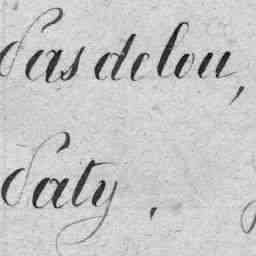 Pasdelou,
Paty.